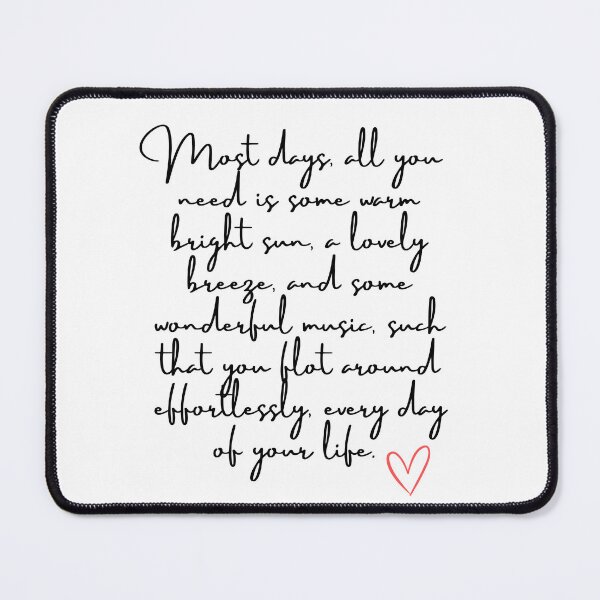 Most days, all you
need is some warm
bright sun, a lovely
breeze, and some
wonderful music, such
that you flot around
effortlessly, every day
of your life.